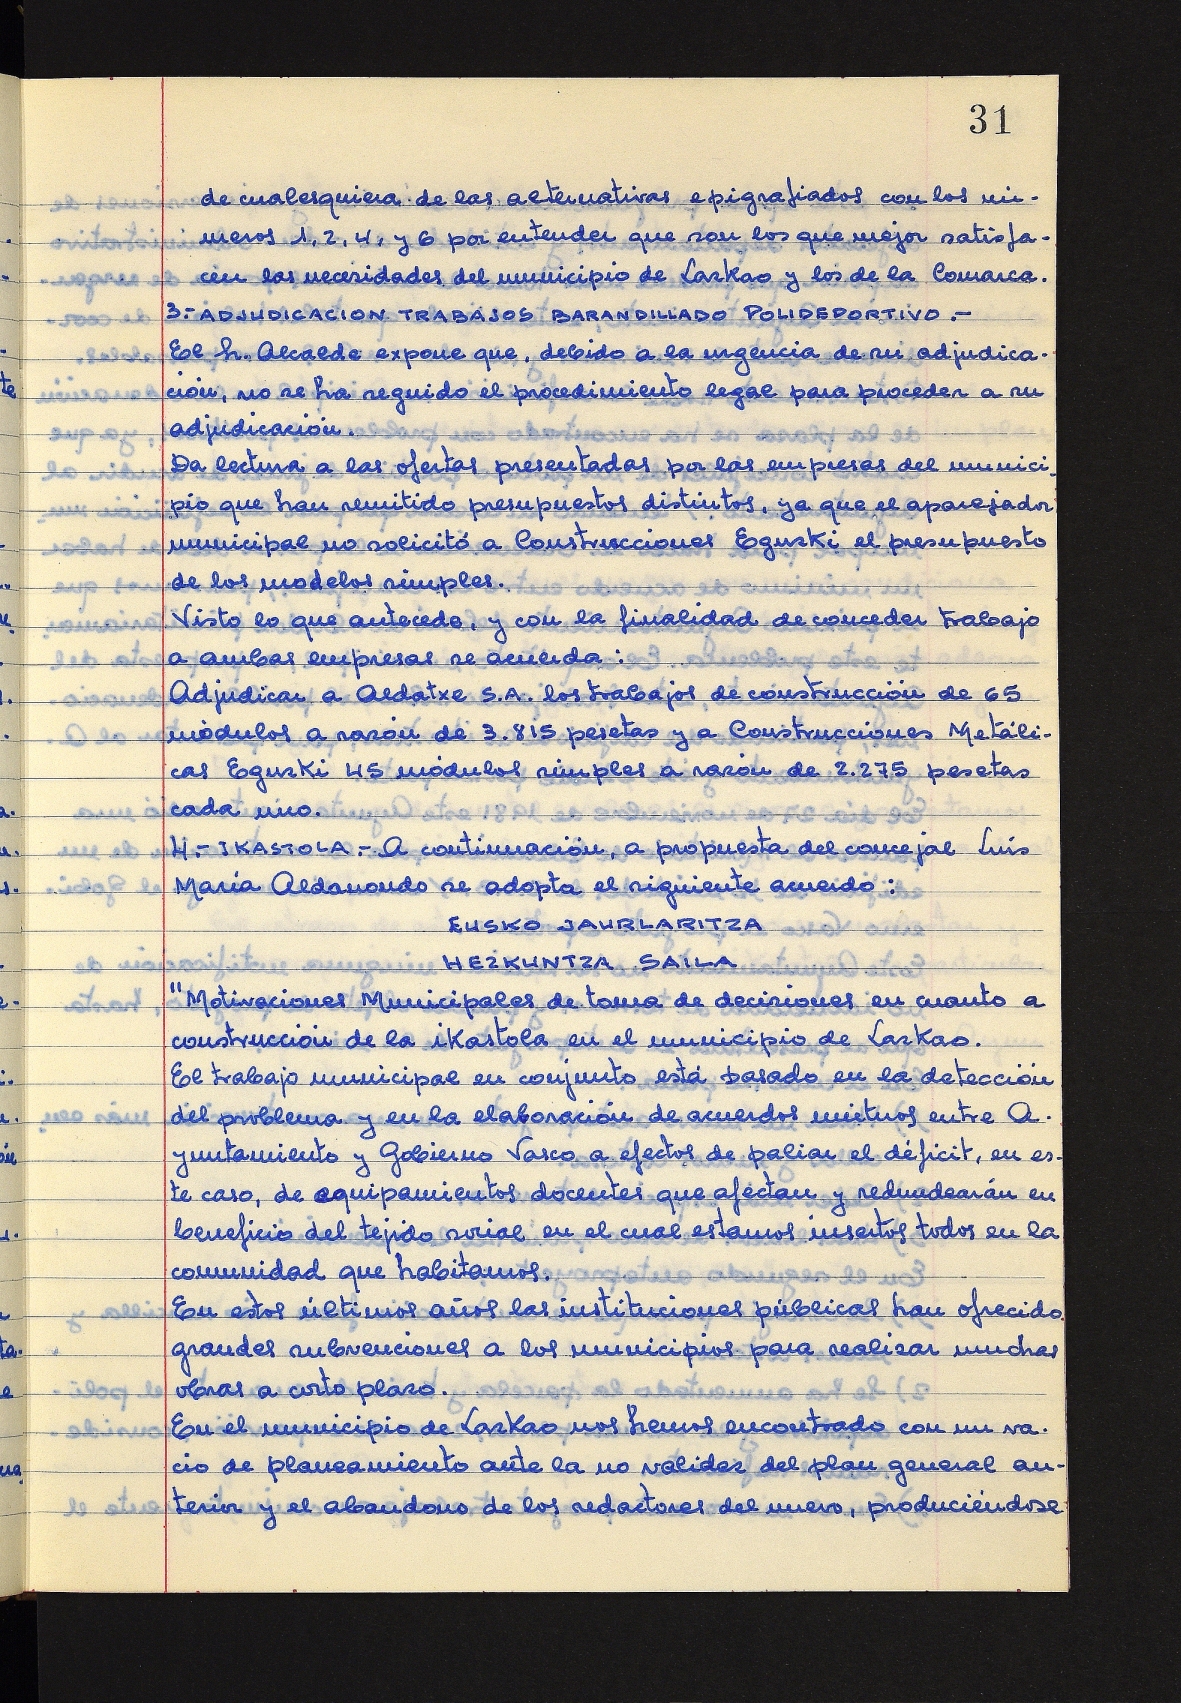 31
de cualesquiera de las alternativas epigrafiados con los nú-
meros 1, 2, 4, y 6 por entender que son los que mejor satisfa-
cen las necesidades del municipio de Lazkao y los de la Comarca.
3.- ADJUDICACION TRABAJOS BARANDILLADO POLIDEPORTIVO.-
El h. Alcalde expone que, debido a la urgencia de su adjudica-
ción, no se ha seguido el procedimiento legal para proceder a su
adjudicación.
Da lectura a las ofertas presentadas por las empresas del munici-
pio que han remitido presupuestos distintos, ya que el aparejador
municipal no solicitó a Construcciones Eguzki el presupuesto
de los modelos simples.
Visto lo que antecede, y con la finalidad de conceder trabajo
a ambas empresas se acuerda:
Adjudicar a Aldatxe S.A. los trabajos de construcción de 65
módulos a razón de 3.815 pesetas y a Construcciones Metáli-
cas Eguzki 45 módulos simples a razón de 2.275 pesetas
cada uno.
4.- IKASTOLA.- A continuación, a propuesta del concejal Luís
María Aldanondo se adopta el siguiente acuerdo:
EUSKO JAURLARITZA
HEZKUNTZA SAILA
"Motivaciones Municipales de toma de decisiones en cuanto a
construcción de la ikastola en el municipio de Lazkao.
El trabajo municipal en conjunto está basado en la detección
del problema y en la elaboración de acuerdos mútuos entre A-
yuntamiento y Gobierno Vasco a efectos de paliar el déficit, en es-
te caso, de equipamientos docentes que afectan y redundearán en
beneficio del tejido social en el cual estamos insertos todos en la
comunidad que habitamos.
En estos últimos años las instituciones públicas han ofrecido
grandes subvenciones a los municipios para realizar muchas
obras a corto plazo.
En el municipio de Lazkao nos hemos encontrado con un va-
cio de planeamiento ante la no validez del plan general an-
terior y el abandono de los redactores del nuevo, produciéndose